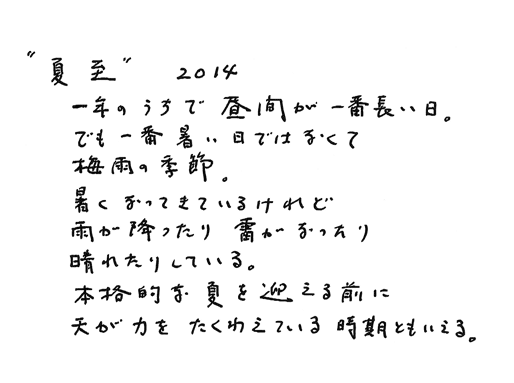 "夏至" 2014
一年のうちで昼間が一番長い日。
でも一番暑い日ではなくて
梅雨の季節。
暑くなってきているけれど
雨が降ったり 雷がなったり
晴れたりしている。
本格的な夏を迎える前に
天が力をたくわえている時期ともいえる。